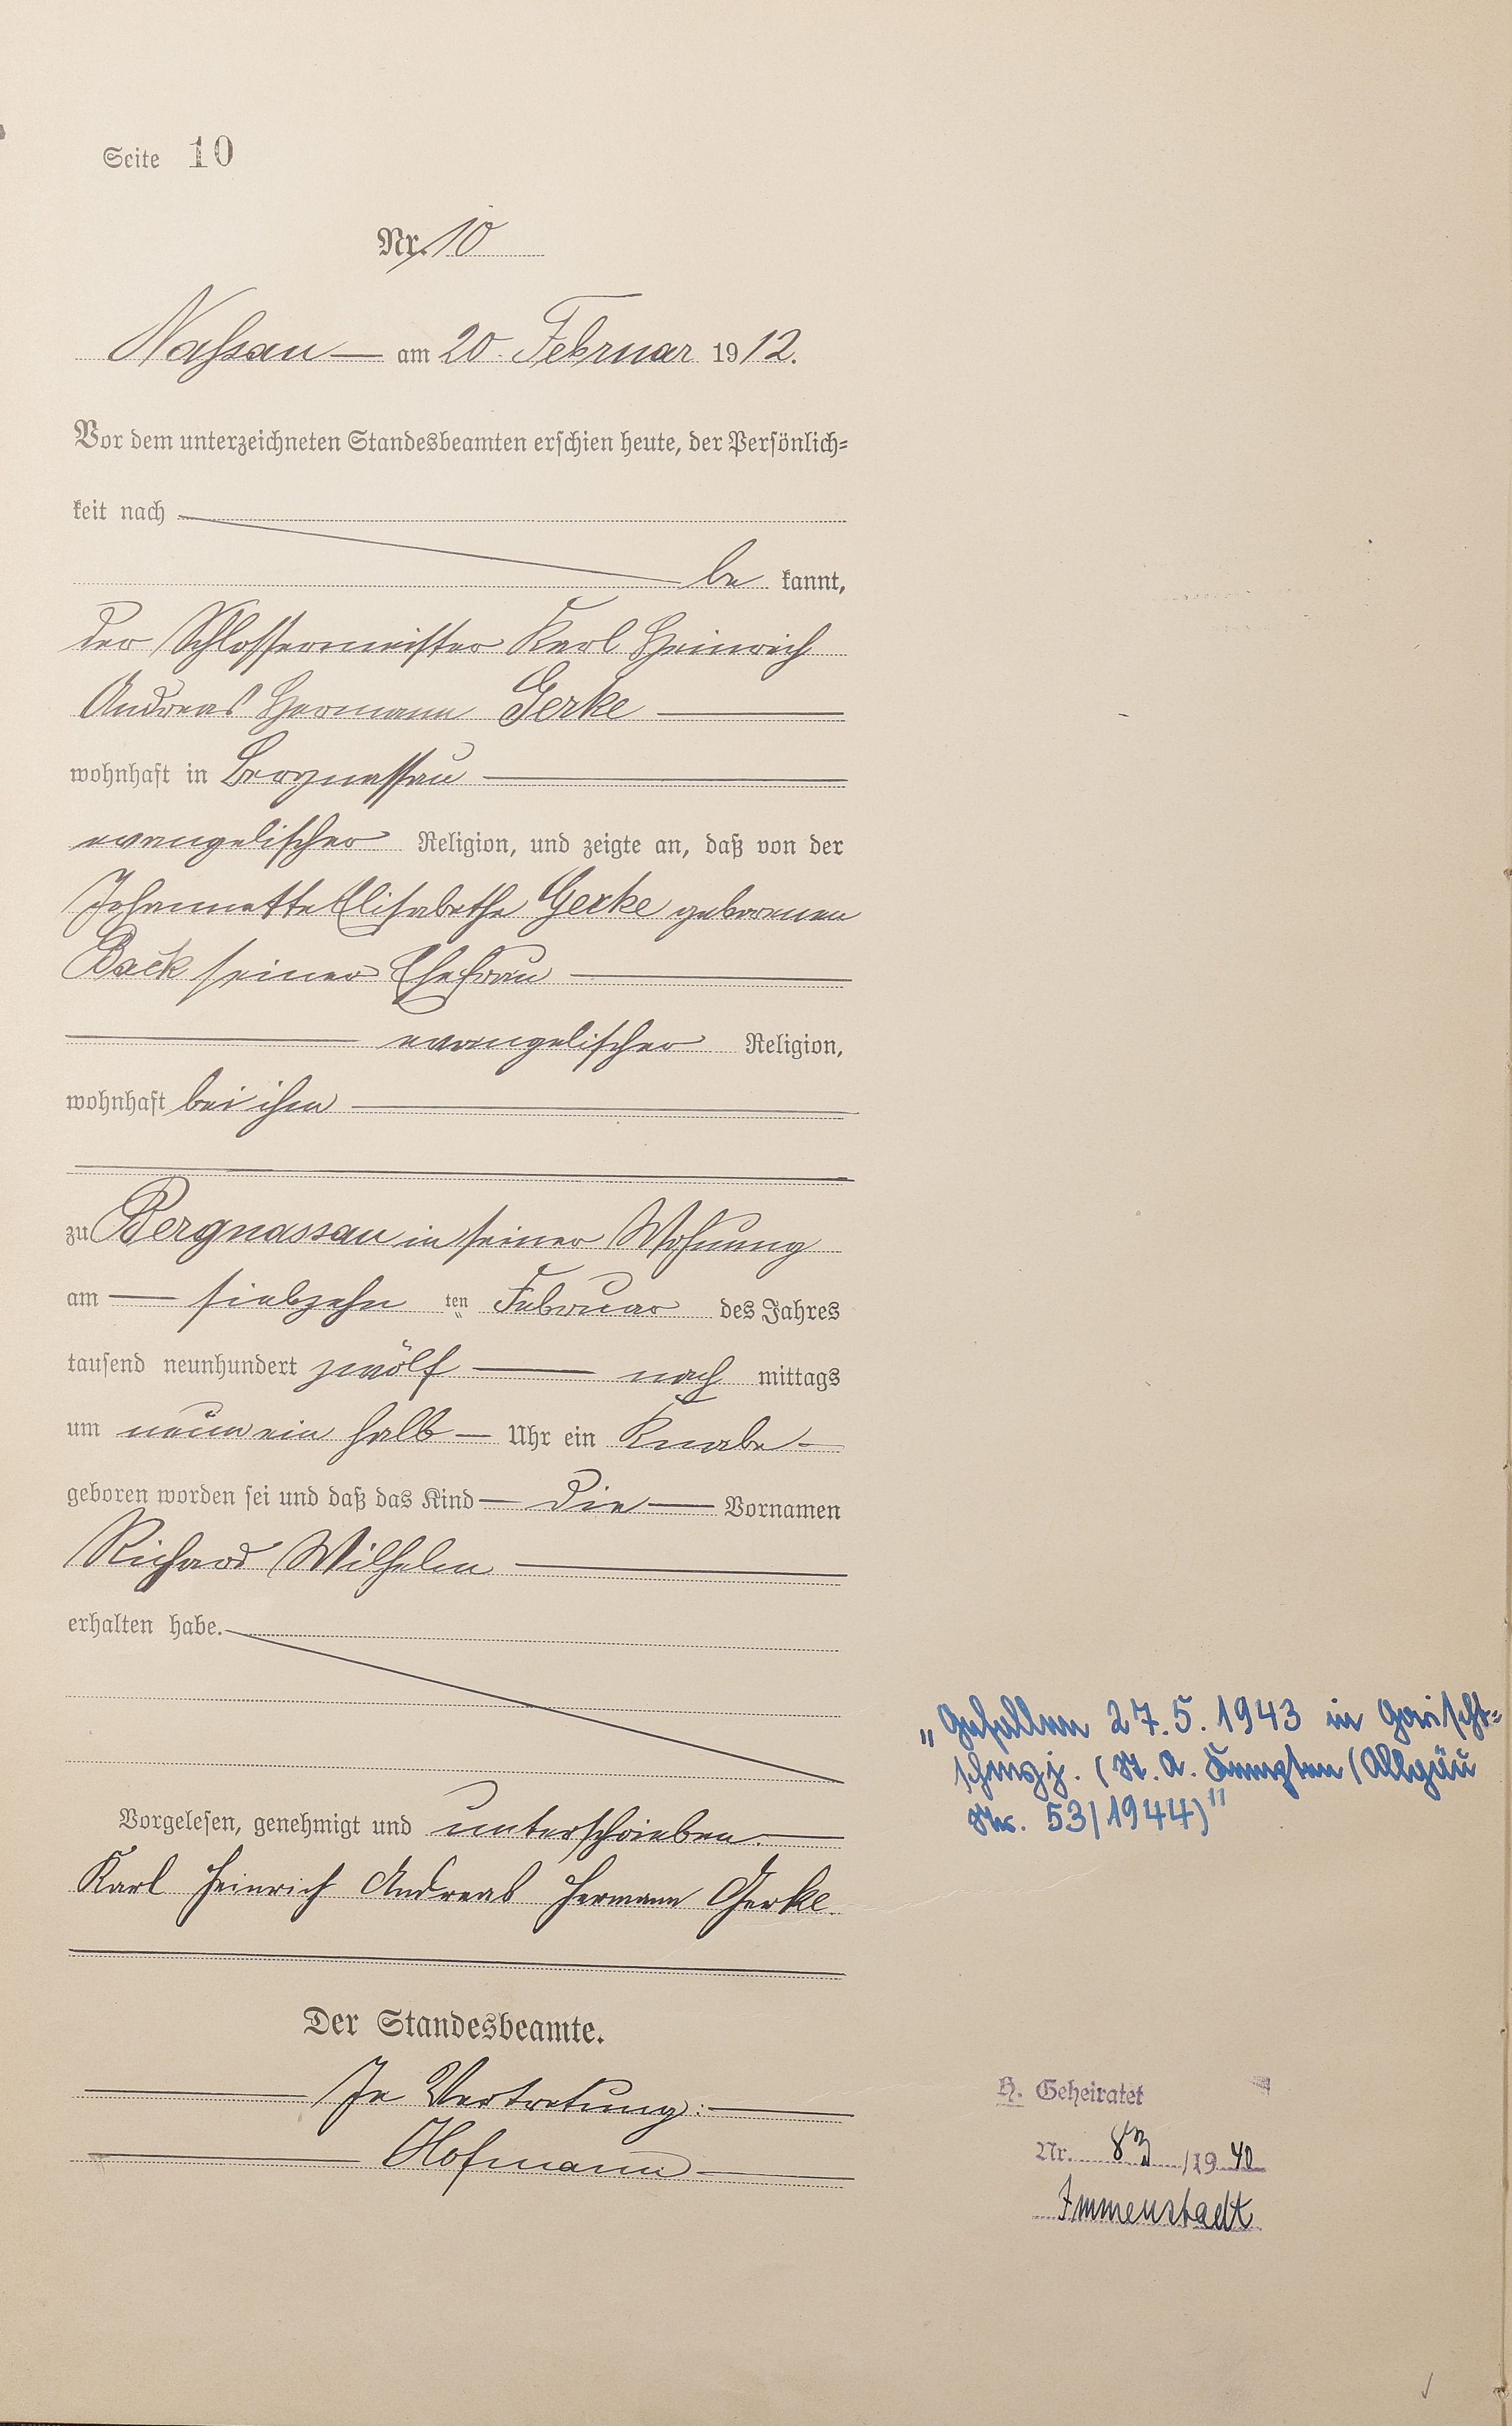 Seite 10
Nr. 10
Nassau am 20. Februar 1912.
Vor dem unterzeichneten Standesbeamten erschien heute, der Persönlich-
keit nach
be kannt,
der Schlossermeister Karl Heinrich
Andreas Hermann Gerke
wohnhaft in Bergnassau
evangelischer Religion, und zeigte an, daß von der
Johannette Elisabethe Gerke geborenen
Back seiner Ehefrau
evangelischer Religion,
wohnhaft bei ihm
zu Bergnassau in seiner Wohnung
am siebzehn ten Februar des Jahres
tausend neunhundert zwölf nach mittags
um neun ein halb Uhr ein Knabe
geboren worden sei und daß das Kind die Vornamen
Richard Wilhelm
erhalten habe.
Vorgelesen, genehmigt und unterschrieben.
Karl Heinrich Andreas Hermann Gerke.
Der Standesbeamte.
In Vertretung:
Hofmann
„Gefallen 27.5.1943 in
(St. A. Kempten (Allgäu
Nr. 53/1944)"
H. Geheiratet
Nr. 83 /1940
Immenstadt